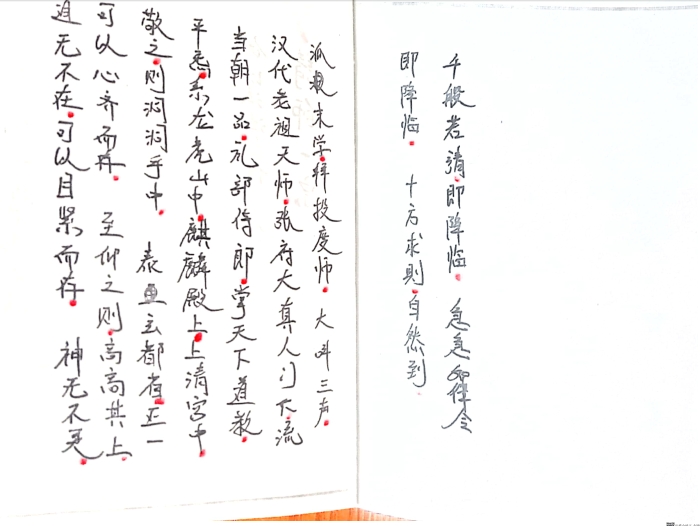 道无不在.可以目而存. 神无不灵.
可以心齐而存. 至仰之则.高高其上.
敬之.则洞洞乎中. 泰玄都省.正一
平炁系龙虎山中.麒麟殿上.上清宫中.
当朝一品.礼部侍郎.掌天下道教.
汉代老祖天师.张府大真人门下.流
派教末学.拜投度师.大叫三声.
即降临. 十方求则.自然到.
千般若请.即降临. 急急如律令